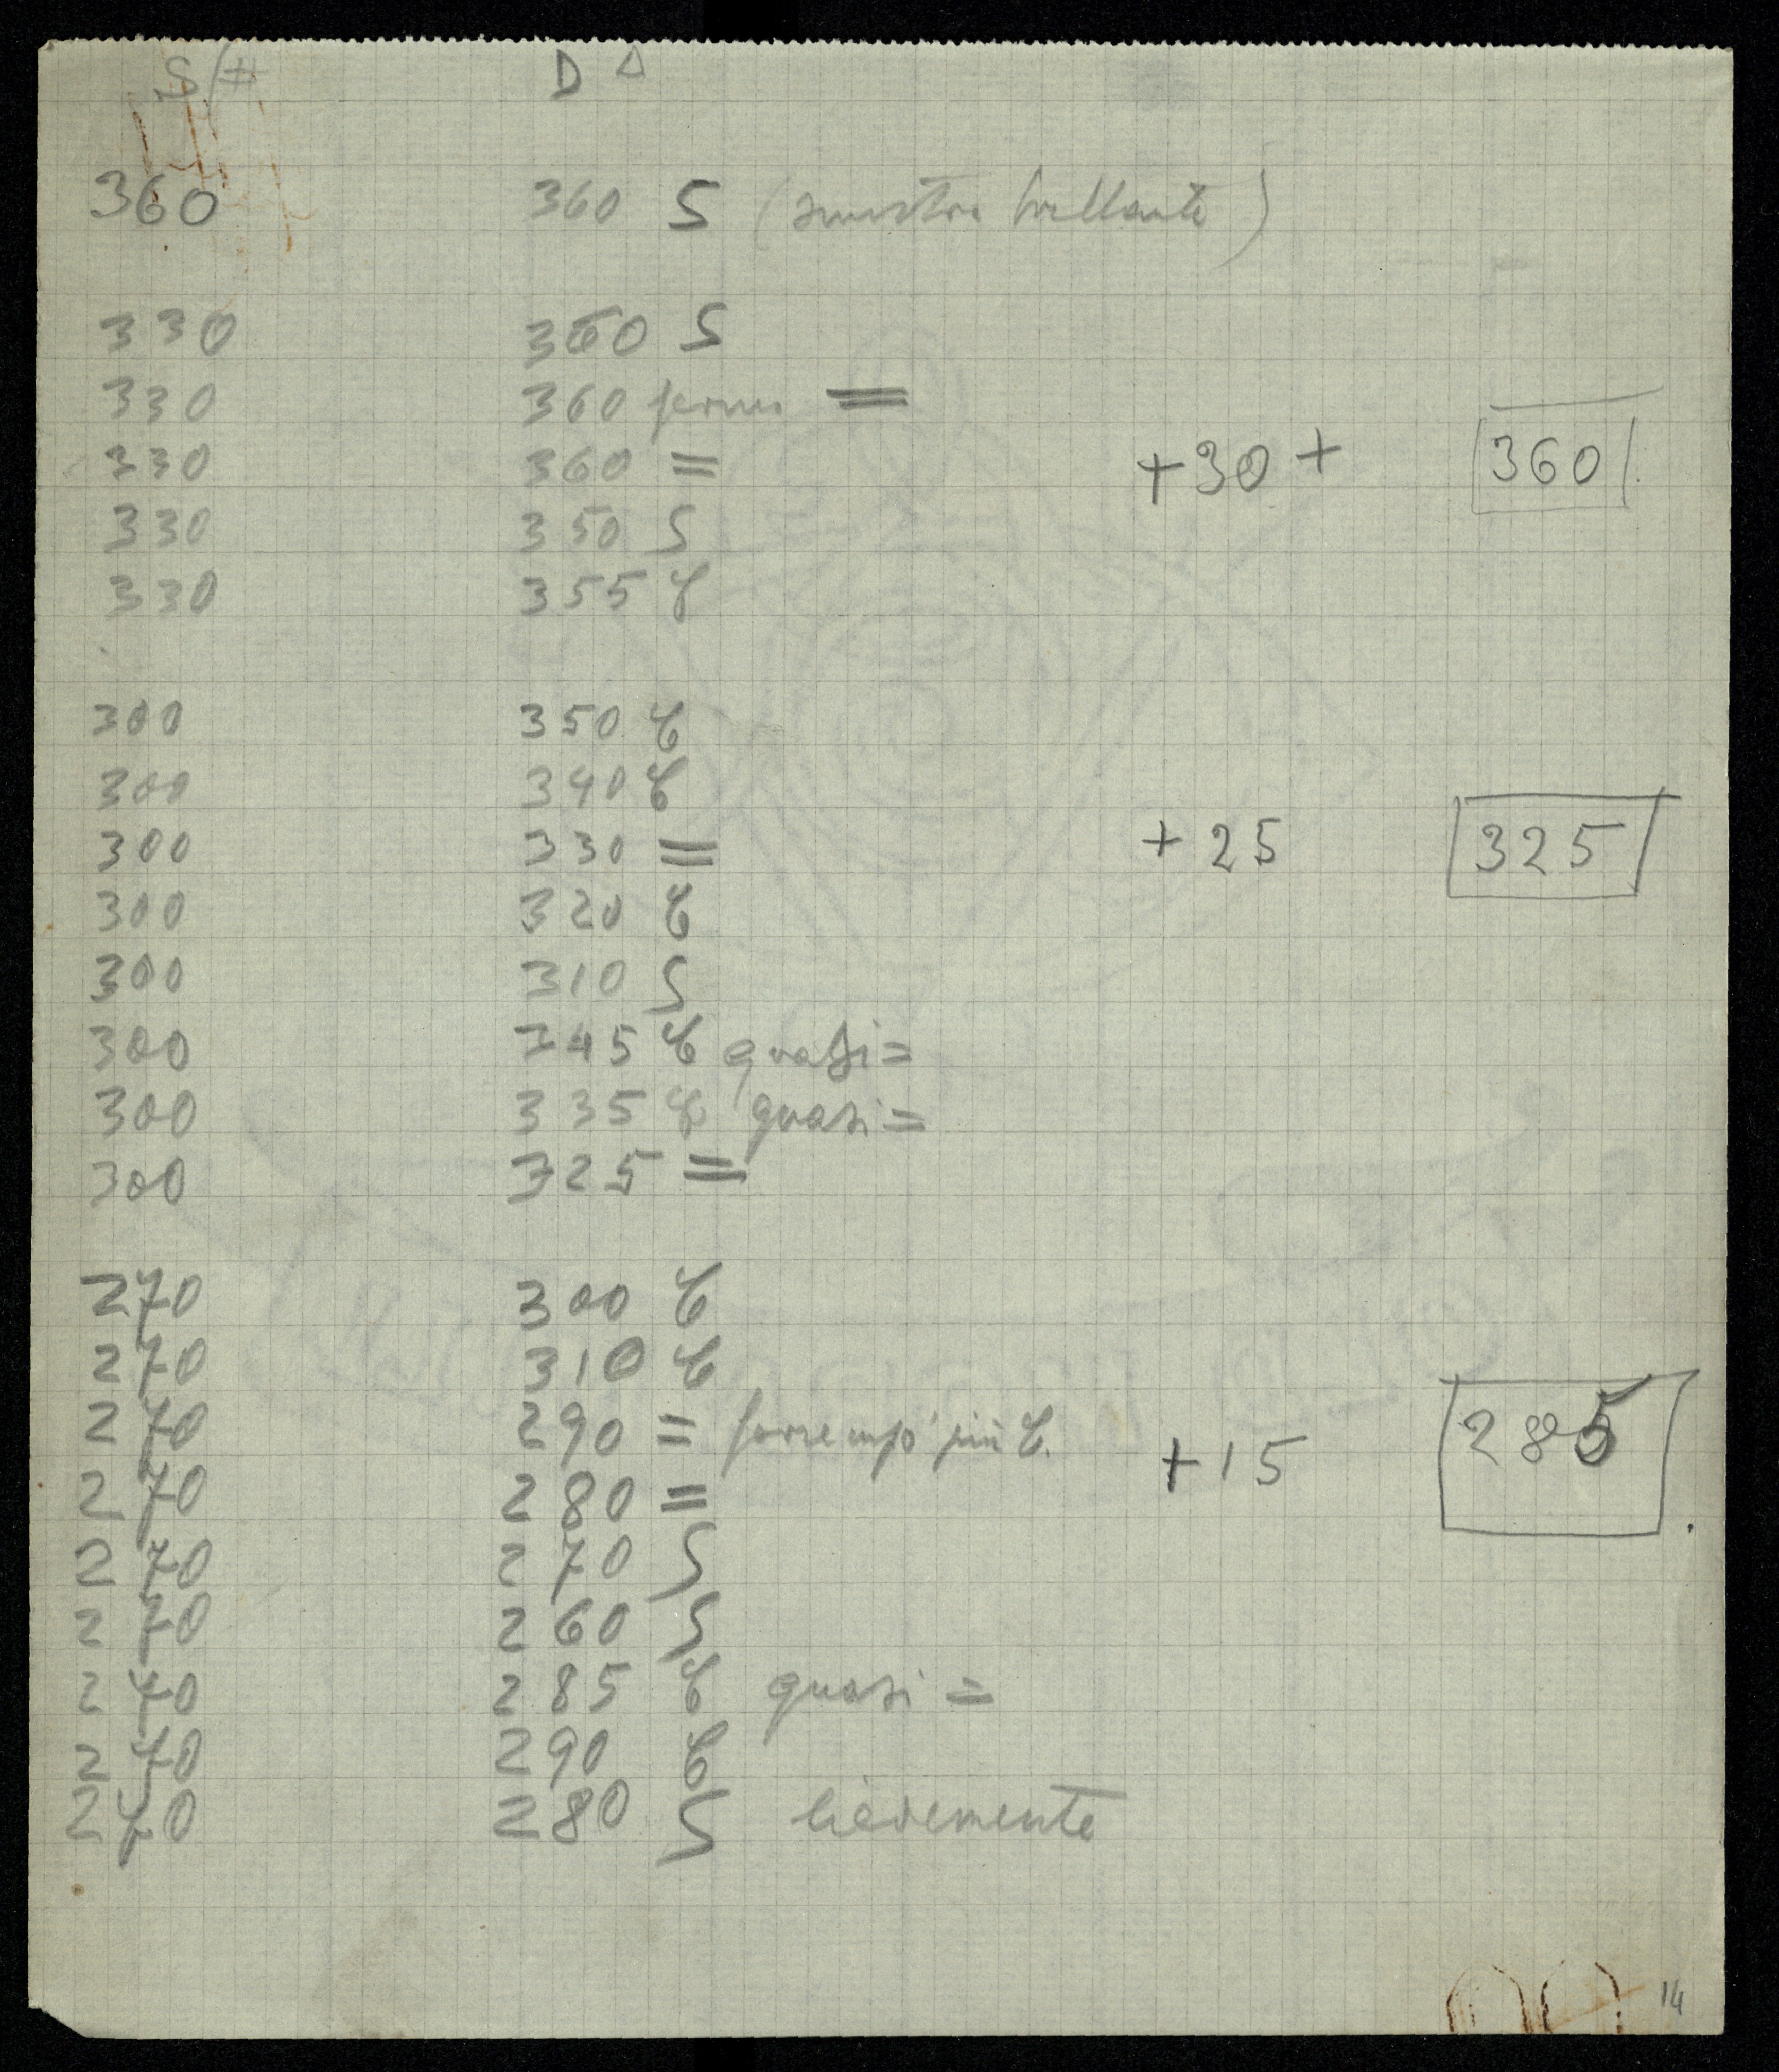 S/# D Δ
360 360 S (sinistra brillante)
330 360 S
330 360 forse =
330 360 =
330 350 S
330 355 C
+30+ 360
300 350 C
300 340 C
300 330 =
300 320 C
300 310 S
300 345 C quasi =
300 335 C quasi =
300 325 =
+25 325
270 300 C
270 310 C
270 290 = forse un po' più C.
270 280 =
270 270 S
270 260 S
270 285 C quasi =
270 290 C
270 280 S lievemente
+15 285
14